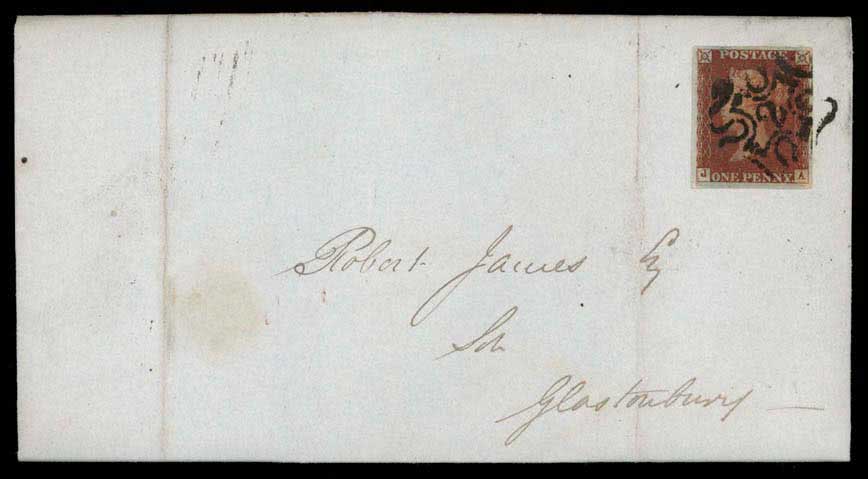 POSTAGE
2
J A
ONE PENNY.
Robert James Esq
Sol
Glastonbury